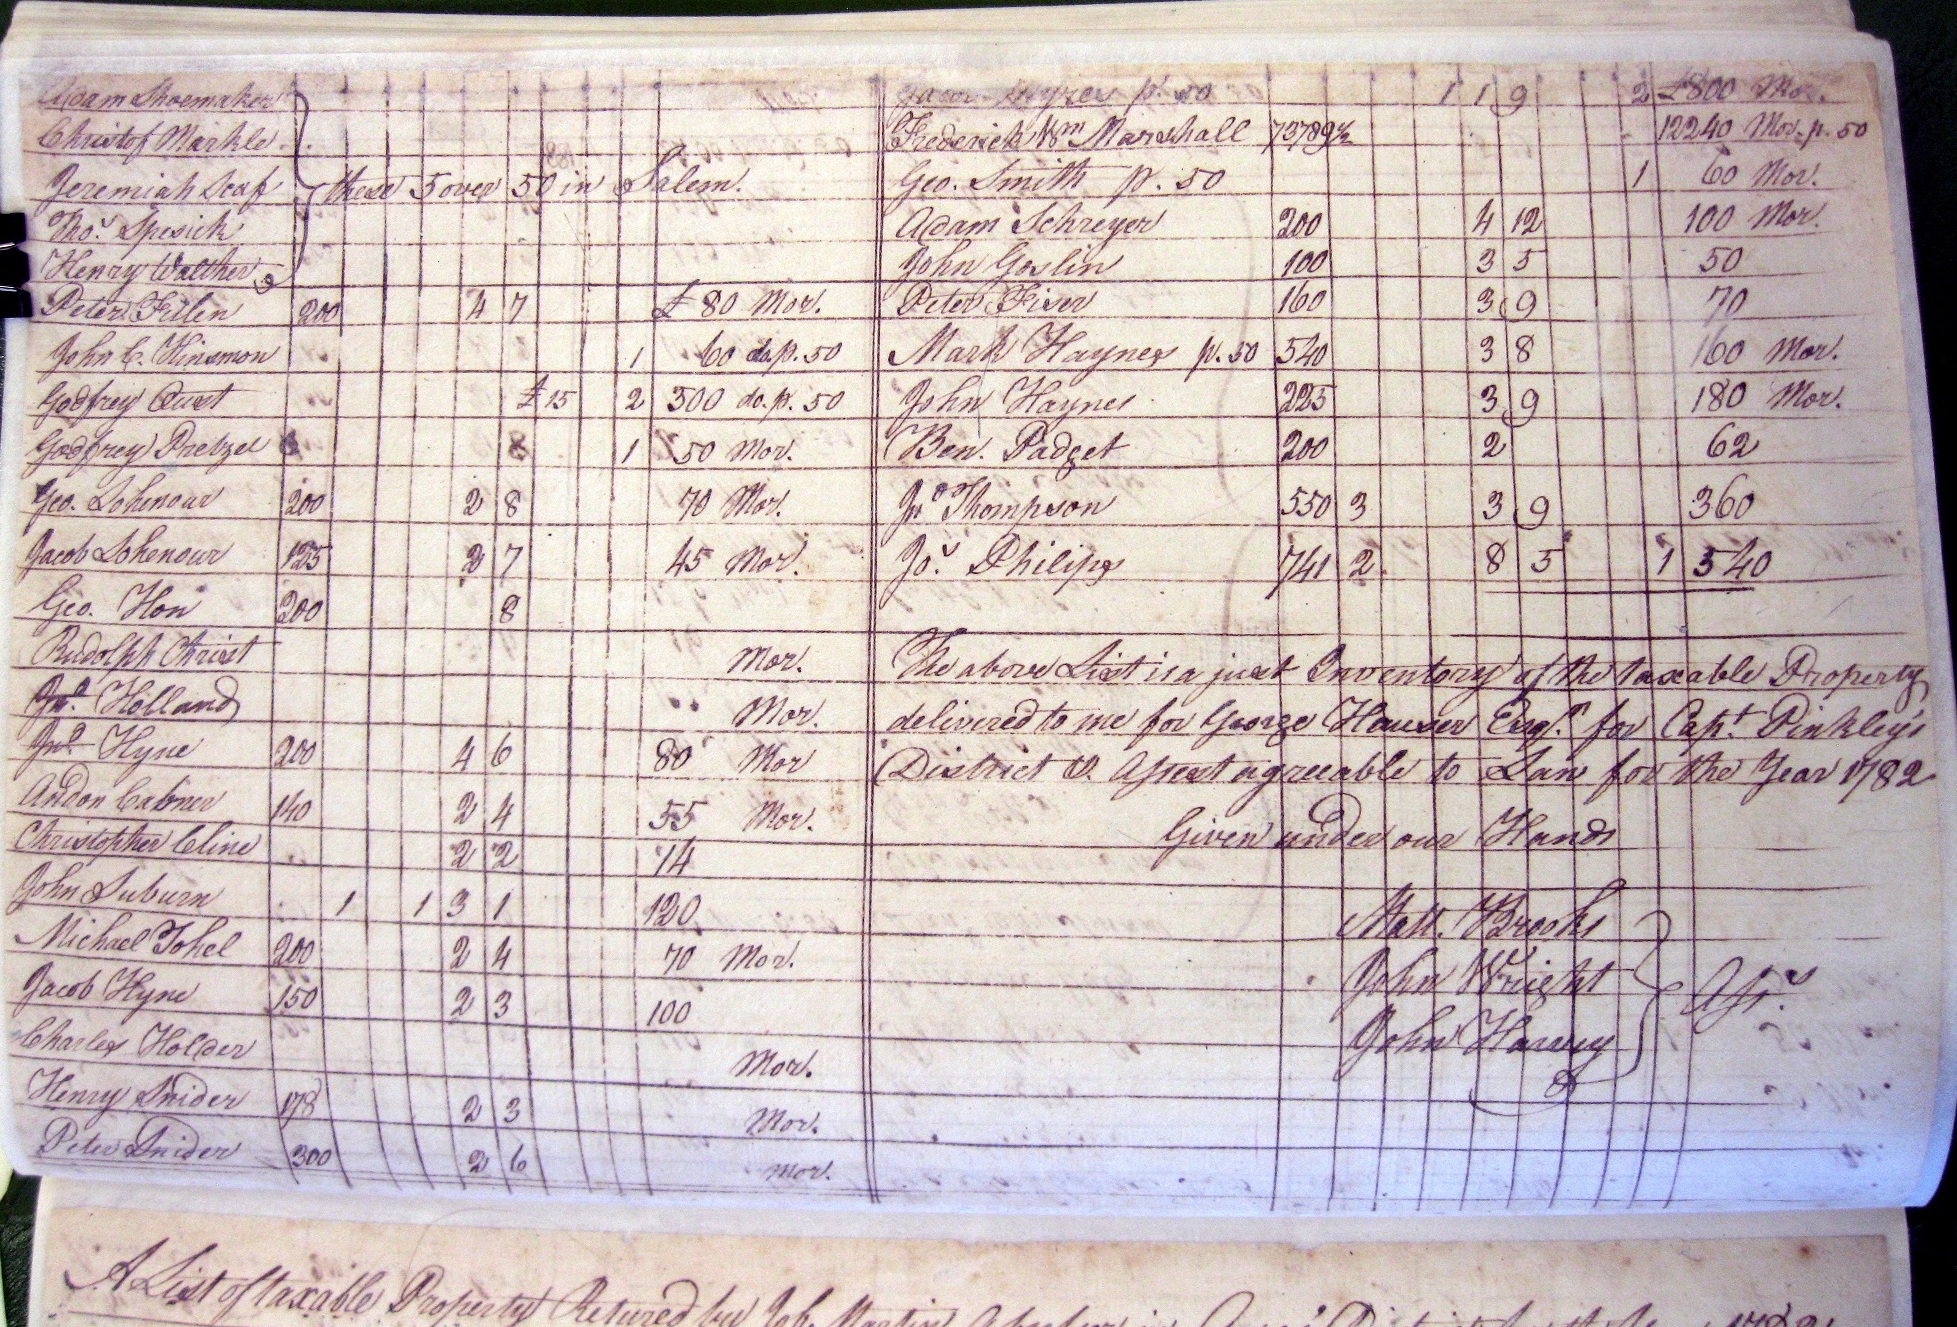 Adam Shoemaker
Christof Markle
Jeremiah Scaf
these 5 over 50 in Salem.
Tho.s Spesick
Henry Walther
Peter Filen 200 4 7 £ 80 Mor.
John C. Kinsmon 1 60 do. p. 50
Godfrey Aust £ 15 2 300 do. p. 50
Godfrey Pretzel 1 50 Mor.
Geo. Lohenour 200 2 8 70 Mor.
Jacob Lohenour 125 2 7 45 Mor.
Geo. Hon 200 8
Rudolph Christ Mor.
Jno. Holland Mor.
Jno. Hyne 200 4 6 80 Mor
Andon Cabner 140 2 4 55 Mor.
Christopher Cline 2 2 14
John Suburn 1 1 3 1 120
Michael Tohel 200 2 4 70 Mor.
Jacob Hyne 150 2 3 100
Charles Holder Mor.
Henry Snider 178 2 3 Mor.
Peter Snider 300 2 6 mor.
p. 50 1 1 9 2 £800 Mor.
Frederick Wm Marshall 73789½ 12240 Mor. p. 50
Geo. Smith p. 50 1 60 Mor.
Adam Schreyer 200 4 12 100 Mor.
John Goslin 100 3 5 50
Peter Fiser 160 3 9 70
Mark Haynes p. 50 540 3 8 160 Mor.
John Haynes 225 3 9 180 Mor.
Ben. Padget 200 2 62
Jno Thompson 550 3 3 9 360
Jos. Philips 741 2 8 5 1 540
The above List is a just Inventory of the taxable Property
delivered to me for George Hauser Esqr. for Capt. Binkley's
District & Assest agreeable to Law for the Year 1782
Given under our Hands
Matt. Brooks
John Wright
Assrs
John Harvey
A List of taxable Property Retured by Job Martin Assessor in District for the Year 1782